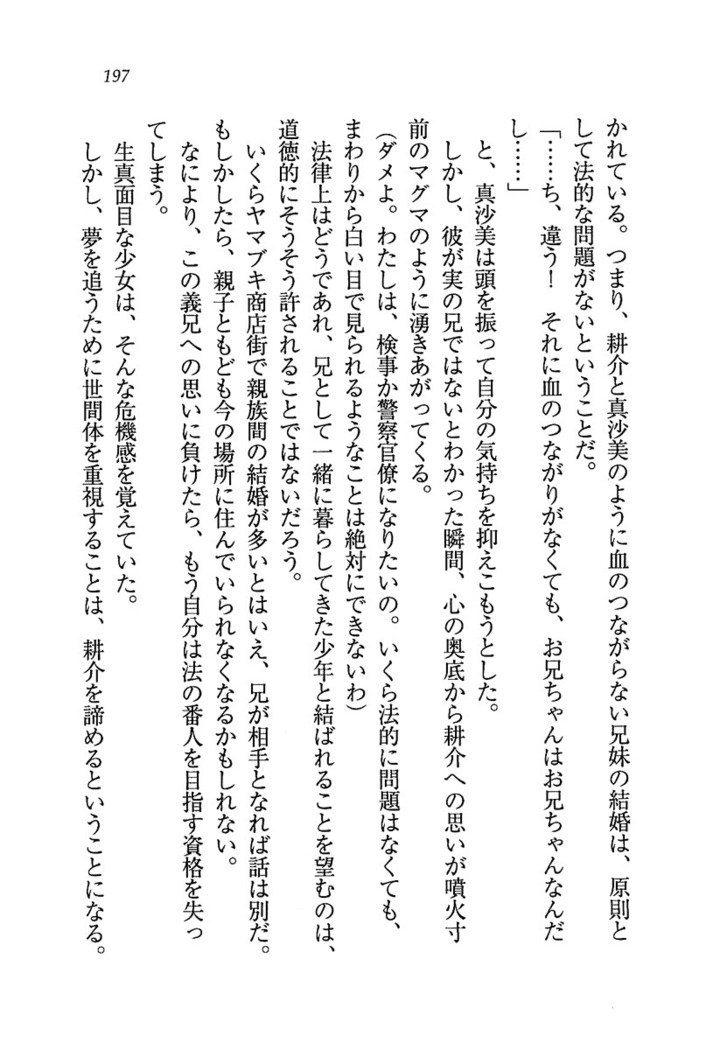 197
かれている。つまり、耕介と真沙美のように血のつながらない兄妹の結婚は、原則と
して法的な問題がないということだ。
「……ち、違う！　それに血のつながりがなくても、お兄ちゃんはお兄ちゃんなんだ
し……」
と、真沙美は頭を振って自分の気持ちを抑えこもうとした。
しかし、彼が実の兄ではないとわかった瞬間、心の奥底から耕介への思いが噴火寸
前のマグマのように湧きあがってくる。
（ダメよ。わたしは、検事か警察官僚になりたいの。いくら法的に問題はなくても、
まわりから白い目で見られるようなことは絶対にできないわ）
法律上はどうであれ、兄として一緒に暮らしてきた少年と結ばれることを望むのは、
道徳的にそうそう許されることではないだろう。
いくらヤマブキ商店街で親族間の結婚が多いとはいえ、兄が相手となれば話は別だ。
もしかしたら、親子ともども今の場所に住んでいられなくなるかもしれない。
なにより、この義兄への思いに負けたら、もう自分は法の番人を目指す資格を失っ
てしまう。
生真面目な少女は、そんな危機感を覚えていた。
しかし、夢を追うために世間体を重視することは、耕介を諦めるということになる。